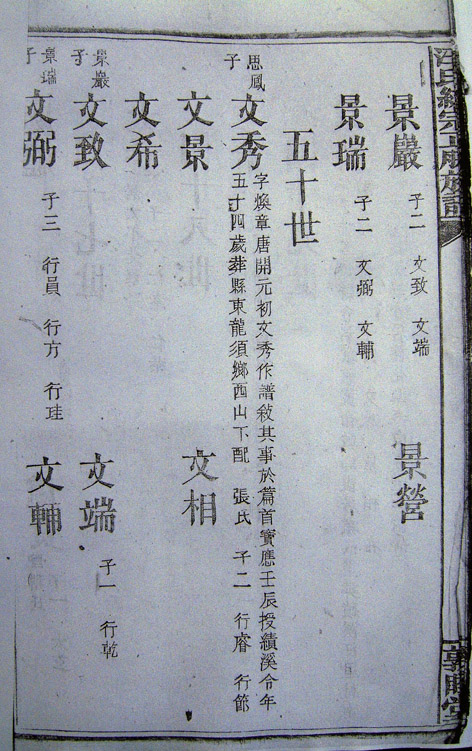 景巖 子二 文致 文端 景營
景瑞 子二 文弼 文輔
五十世
思鳳子 文秀 字煥章唐開元初文秀作譜敘其事於篇首寶應壬辰授績溪令年
五十四歲葬縣東龍須鄉西山下配 張氏 子二 行睿 行節
文景 文相
文希
景巖子 文致 文端 子一 行乾
景瑞子 文弼 子三 行員 行方 行珪 文輔